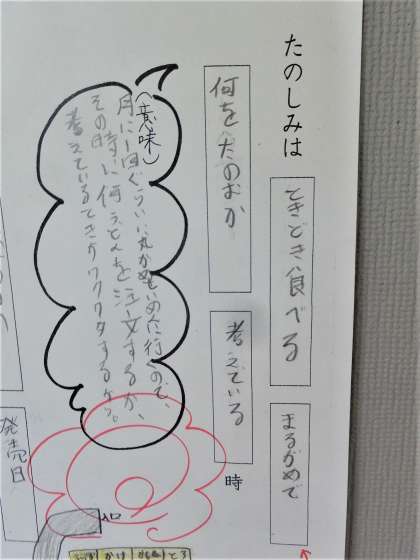 たのしみは
ときどき食べる
まるがめで
何をたのおか
考えている
時
(意味)
月に一回ぐらいに丸がめせいめんに行くので、
その時に何うどんを注文するか、
考えているときがワクワクするから。
発売日